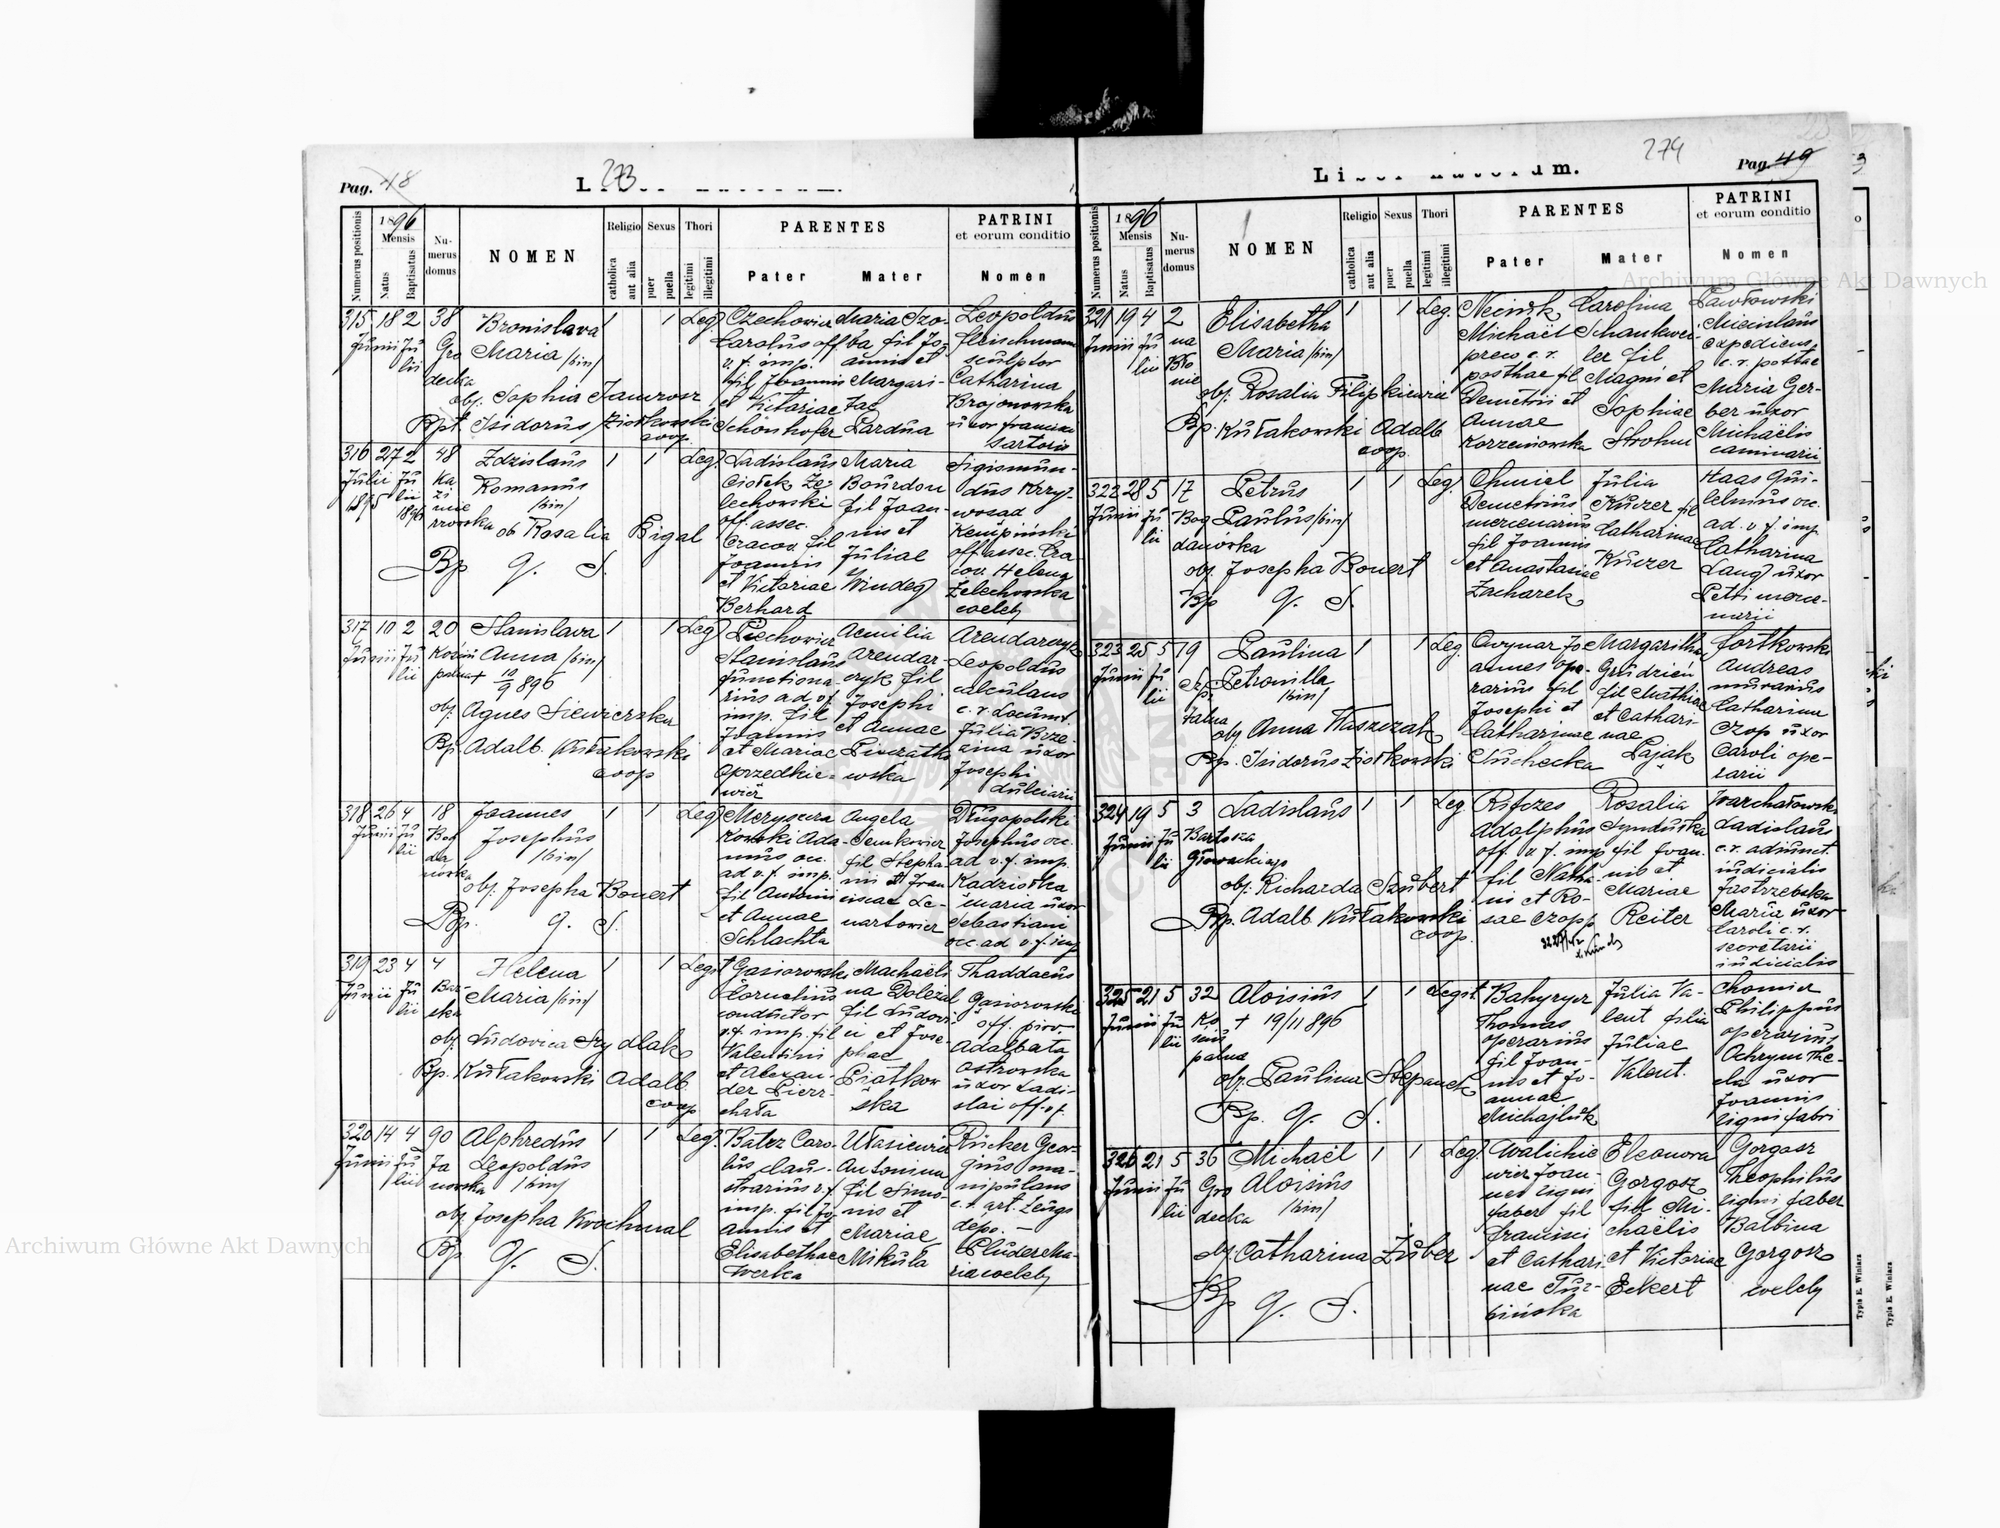 Pag. 48
273
Liber natorum.
Numerus positionis
1896
Mensis
Natus
Baptisatus
Numerus domus
NOMEN
Religio
catholica
aut alia
Sexus
puer
puella
Thori
legitimi
illegitimi
PARENTES
Pater
Mater
PATRINI
et eorum conditio
Nomen
315 18 2 38
Junii Julii
Grodecka
Bronislava
Maria /bin/
obj. Sophia Jaworosz
Bpt. Isidorus Ziołkowski
coop.
1 1 Leg.
Czechowicz
Carolus off.
v. f. imp.
fil Joannis
et Victoriae
Schönhofer
Maria Szo-
ba fil Jo-
annis et
Margari-
tae
Pardua
Leopoldus
Fleischmann
sculptor
Catharina
Brojonowska
uxor Francisci
sartoris
316 27 2 48
Julii Julii
1895 1896
Kazimierzowska
Zdzislaus
Romanus
/bin/
ob Rosalia Bigal
Bp q. S.
1 1 Leg.
Ladislaus
Ciołek Że-
lechowski
off. assec.
Cracov. fil
Joannis
et Victoriae
Berhard
Maria
Bourdon
fil Joan-
nis et
Juliae
Windeg
Sigismun-
dus Krzy-
wosąd
Kempiński
off assec. Cra
cov. Helena
Żelechowska
coeleb
317 10 2 20
Junii Julii
Stanislava
Anna /bin/
+ 10/9 896
obj. Agnes Siewierska
Bp. Adalb. Kułakowski
coop
1 1 Leg
Piechowicz
Stanislaus
functiona-
rius ad v.f.
imp. fil
Joannis
et Mariae
Aemilia
Arendar-
czyk fil
Josephi
et Annae
Arendarczyk
Leopoldus
calculans
c. r. Locumt.
Julia Brze-
zina uxor
Josephi
dulciarii
318 26 4 18
Junii Julii
Bogdanowka
Joannes
Josephus
/bin/
obj. Josepha Bonert
Bp. q. S.
1 1 Leg
Ada-
mus oc.
ad v.f. imp.
fil Antonii
et Annae
Schlachta
Angela
Semkowicz
fil Stepha-
ni et Fran
ciscae Le-
nartowicz
Długopolski
Josephus oc.
ad v. f. imp.
Kadziołka
Maria uxor
Sebastiani
oc. ad v. f. imp
319 23 4 4
Junii Julii
Helena
Maria /bin/
obj. Ludovica Szydlak
Bp. Kułakowski Adalb
coop
1 1 Legit
Gąsiorowski
Cornelius
conductor
v.f. imp. fil
Valentini
et Alexan-
der Pierz-
chała
Machaeli
na Doležal
fil Ludovi-
ci et Jose-
phae
Piątkow
ska
Thaddaeus
Gąsiorowski
off. prov.
Adalbata
Ostrowska
uxor Ladi-
slai off. v f.
320 14 4 90
Junii Julii
Janowska
Alphredus
Leopoldus
/bin/
obj Josepha Krochmal
Bp q. S.
1 1 Leg.
Batcz Caro-
lus clau-
strarius v. f
imp. fil Jo-
annis et
Elisabethae
Werka
Antonina
fil Simo-
nis et
Mariae
Mikuła
Rücker Geor-
gius ma-
nipulans
c. r. art. Zeugs
depo. —
Pluder Ma-
ria coeleb
274
Pag. 49
Liber natorum.
Numerus positionis
1896
Mensis
Natus
Baptisatus
Numerus domus
NOMEN
Religio
catholica
aut alia
Sexus
puer
puella
Thori
legitimi
illegitimi
PARENTES
Pater
Mater
PATRINI
et eorum conditio
Nomen
321 19 4 2
Junii Julii
na Błonie
Elisabetha
Maria /bin/
obj. Rosalia Filipkiewicz
Bp. Kułakowski Adalb
coop.
1 1 Leg.
Michaël
posthae fil
Demetrii et
Annae
Korzeniowska
Carolina
Schankwei-
ler fil
Magni et
Sophiae
Strohm
Pawłowski
Miecislaus
expediens
c. r. postae
Maria Ger-
ber uxor
Michaëlis
caminarii
322 28 5 17
Junii Julii
Bogdanówka
Petrus
Paulus /bin/
obj. Josepha Bonert
Bp q. S.
1 1 Leg
Chmiel
Demetrius
mercenarius
fil Joannis
et Anastasiae
Zacharek
Julia
Kuczer fil
Catharinae
Kuczer
Haas Gui-
lelmus oc.
ad. v f. imp
Catharina
Lang uxor
Petri merce-
narii
323 25 5 19
Junii Julii
Paulina
Petronilla
/bin/
obj Anna Waszczak
Bp. Isidorus Ziołkowski
1 1 Leg
Jo
annes ope-
rarius fil
Josephi et
Catharinae
Suchecka
Margaritha
Grudzień
fil Mathiae
et Cathari-
nae
Pająk
Fortkowski
Andreas
murarius
Catharina
Czop uxor
Caroli ope-
rarii
324 19 5 3
Junii Julii
Bartosza
Głowackiego
Ladislaus
obj. Richarda Szubert
Bp. Adalb Kułakowski
coop.
1 1 Leg
Rifczes
Adolphus
off. v f. imp
fil Natha-
ni et Ro-
sae Czopp
Rosalia
Synduska
fil Joan-
nis et
Mariae
Reiter
Warchałowski
Ladislaus
c. r. adiunct.
iudicialis
Jastrzębska
Maria uxor
Caroli c. r.
secretarii
iudicialis
325 21 5 32
Junii Julii
Aloisius
+ 19/11 896
obj. Paulina Stepanek
Bp. q. S.
1 1 Legit
Bahyryer
Thomas
operarius
fil Joan-
nis et Jo-
annae
Michajluk
Julia Va-
lent filia
Juliae
Valent.
Chomicz
Philippus
operarius
Achrym The-
cla uxor
Joannis
ligni fabri
326 21 5 36
Junii Julii
Grodecka
Michaël
Aloisius
/bin/
obj Catharina Zuber
Bp q. S.
1 1 Leg
Walichie
wicz Joan-
nes ligni
faber fil
Francisci
et Cathari
nae Tur-
bińska
Eleonora
Gorgosz
fil Mi-
chaëlis
et Victoriae
Eckert
Gorgosz
Theophilus
ligni faber
Balbina
Gorgosz
coeleb
Typis E. Winiarz
Typis E. Winiarz
Archiwum Główne Akt Dawnych
Archiwum Główne Akt Dawnych